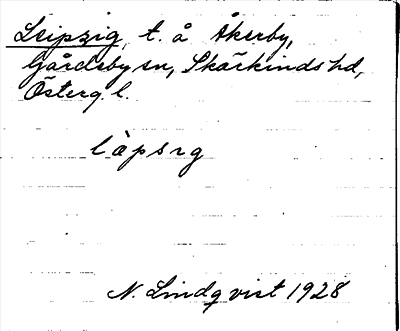 Leipzig, t. å Åkerby,
Gårdeby sn, Skärkinds hd,
Österg. l.
làpsıg
N. Lindqvist 1928